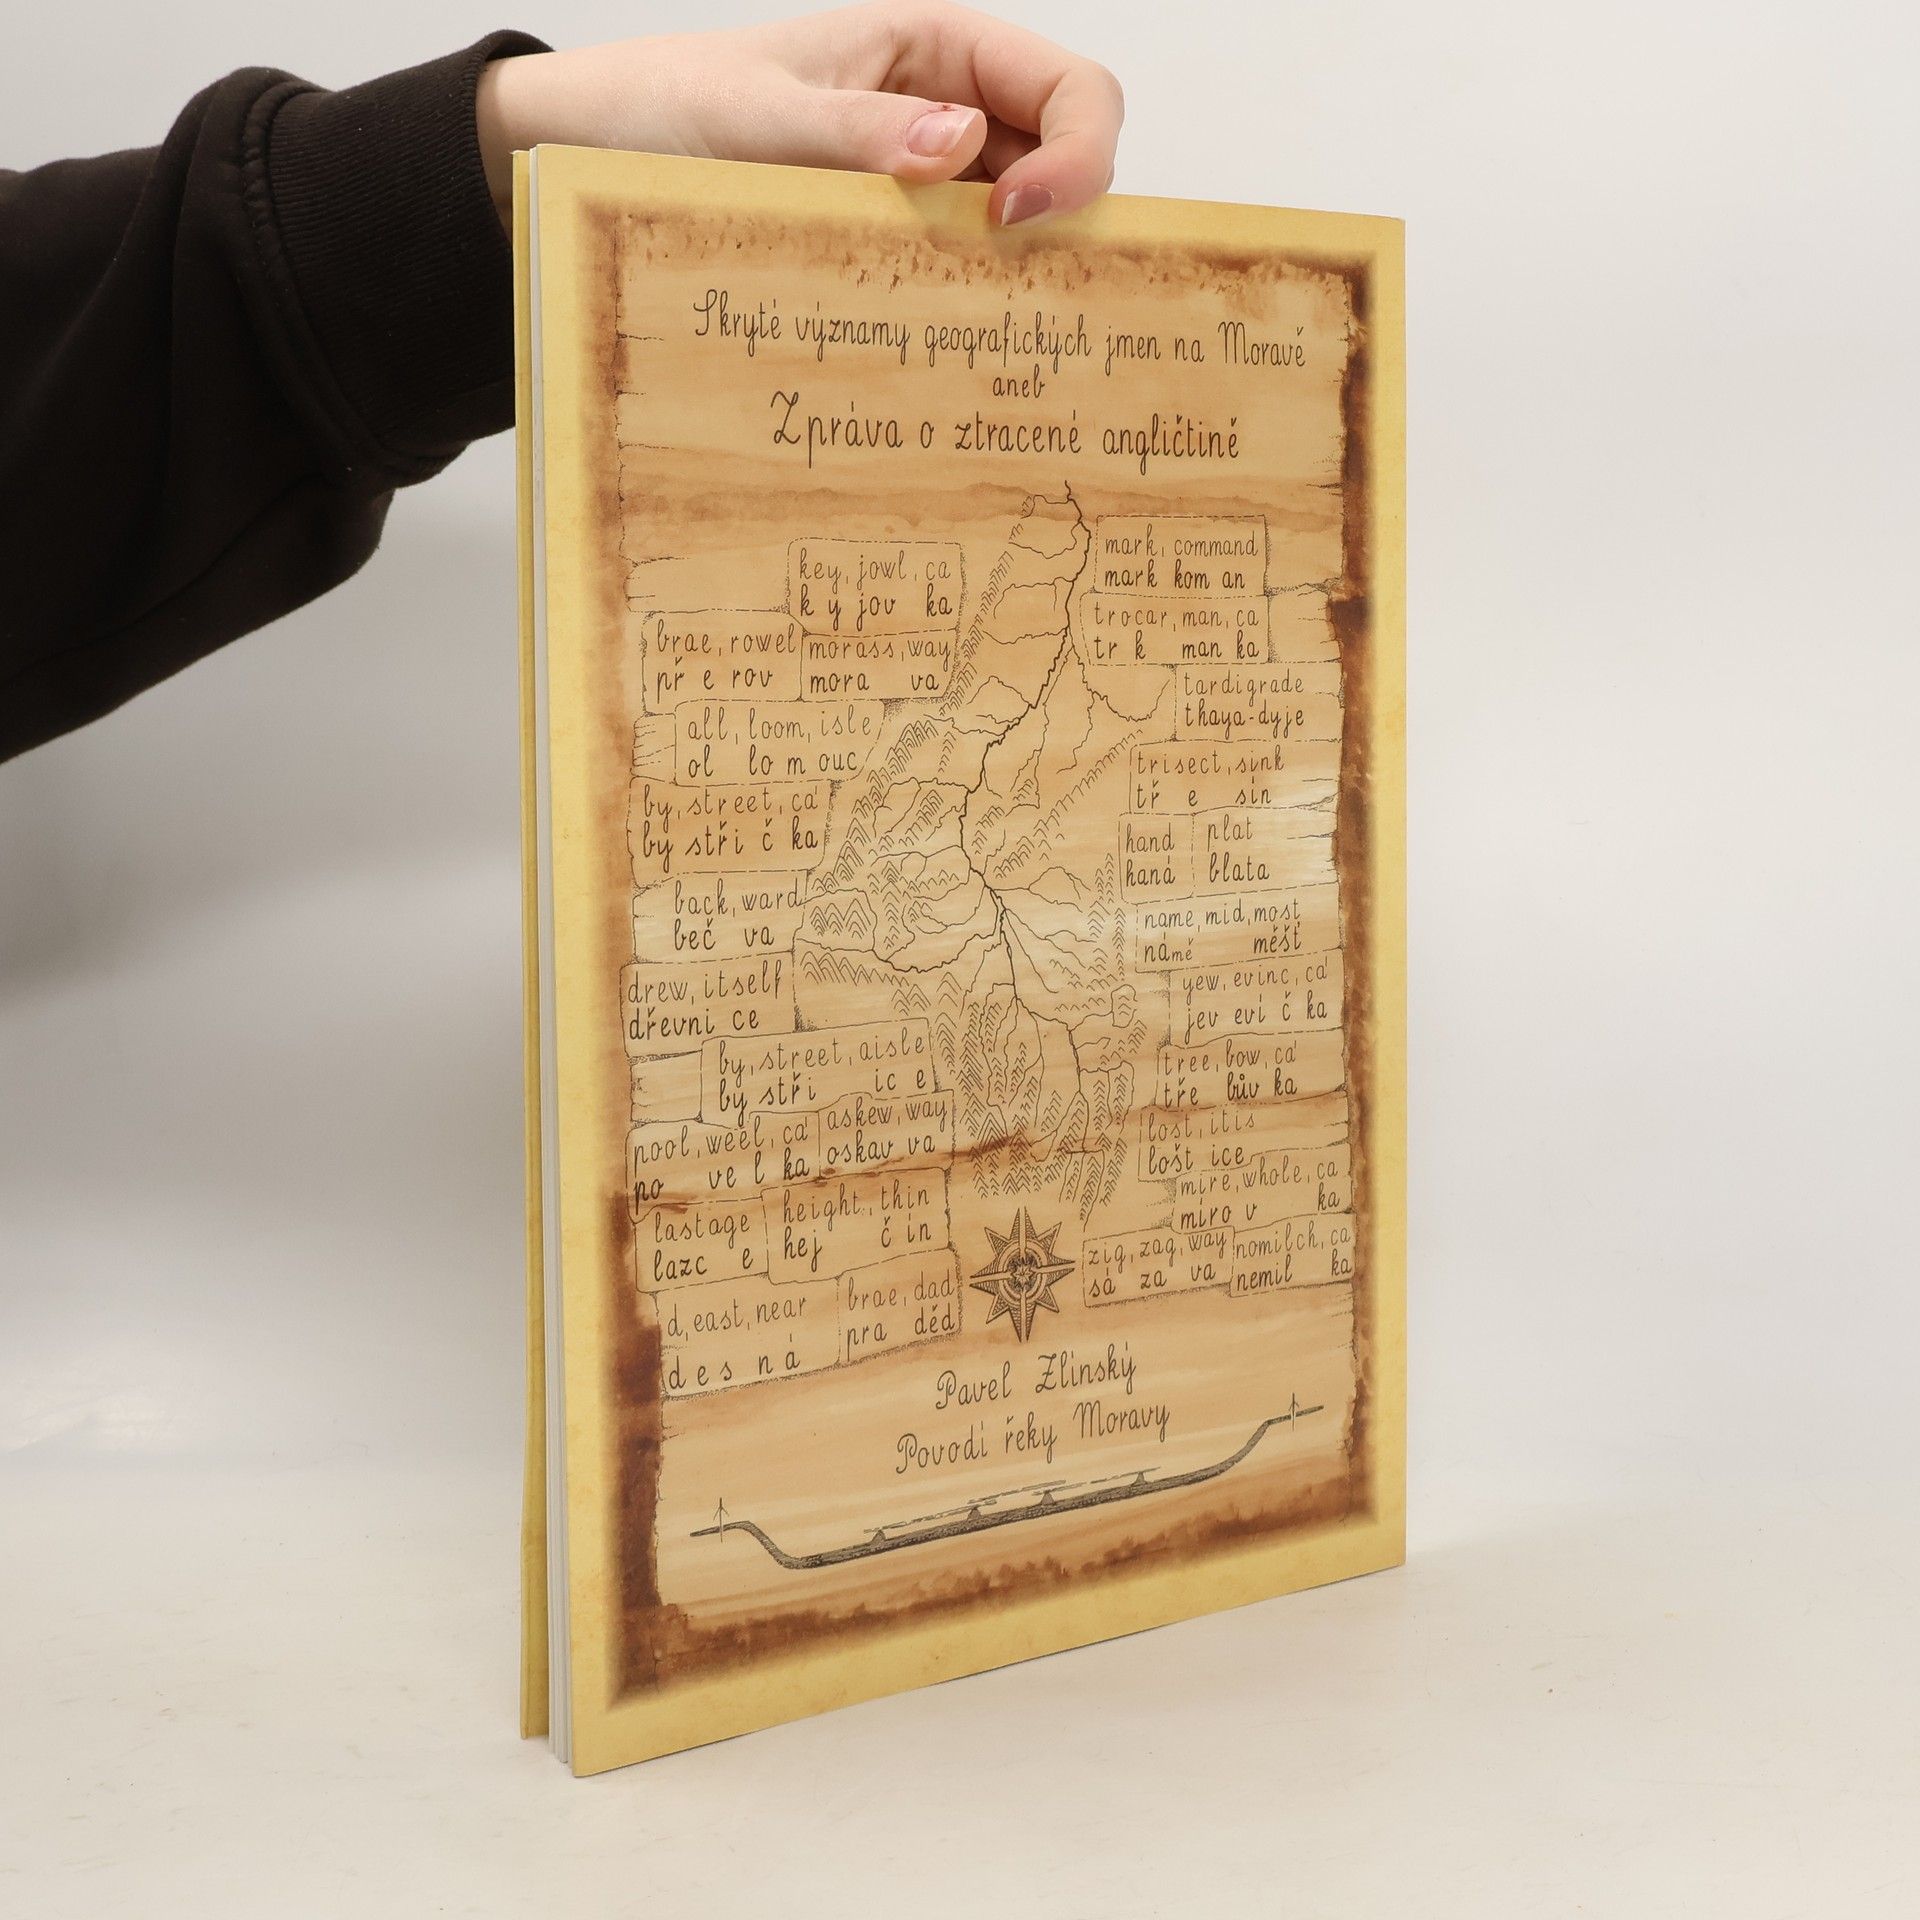 Skryté významy geografických jmen na Moravě
aneb
Zpráva o ztracené angličtině
key, jowl, ca
k y jov ka
brae, rowel
př e rov
morass, way
mora va
all, loom, isle
ol lo m ouc
by, street, ca'
by stři č ka
back, ward
beč va
drew, itself
dřevni ce
by, street, aisle
by stři ic e
pool, weel, ca'
po ve l ka
askew, way
oskav va
lastage
lazc e
height, thin
hej č ín
d, east, near
d e s n á
brae, dad
pra děd
mark, command
mark kom an
trocar, man, ca
tr k man ka
tardigrade
thaya-dyje
trisect, sink
tř e sín
hand
haná
plat
blata
name, mid, most
ná mě měšť
yew, evinc, ca'
jev eví č ka
tree, bow, ca'
tře bův ka
lost, itis
lošt ice
mire, whole, ca
míro v ka
zig, zag, way
sá za va
nomilch, ca
nemil ka
Pavel Zlínský
Povodí řeky Moravy